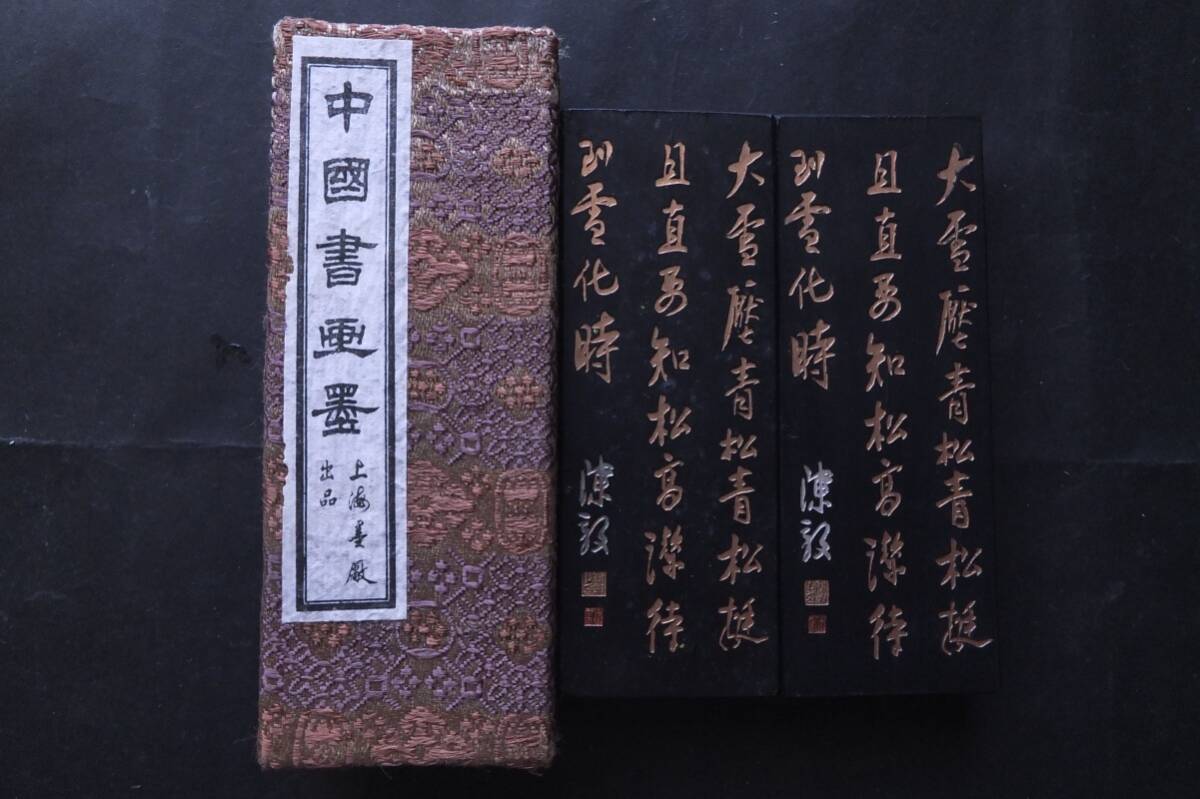 中國書画墨
上海墨厰
出品
大雪壓青松青松挺
且直要知松高潔待
到雪化時
陳毅
大雪壓青松青松挺
且直要知松高潔待
到雪化時
陳毅